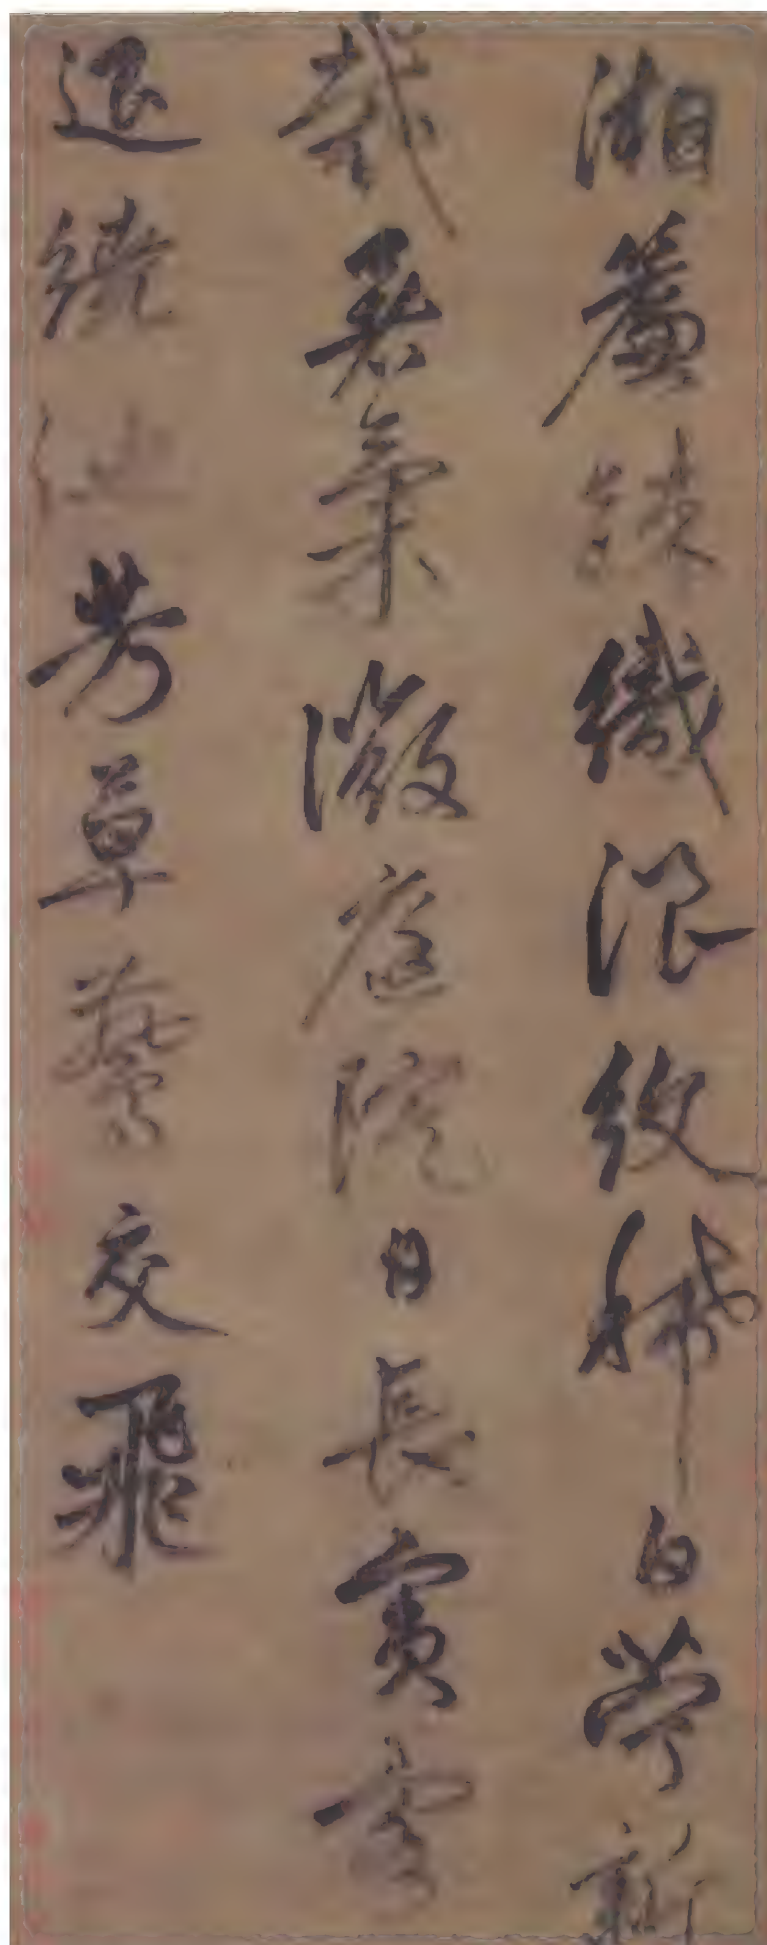 湘簾疎織浪紋稀白苧新
裁暑氣微庭院日長賓客
退繞池芳草燕交飛